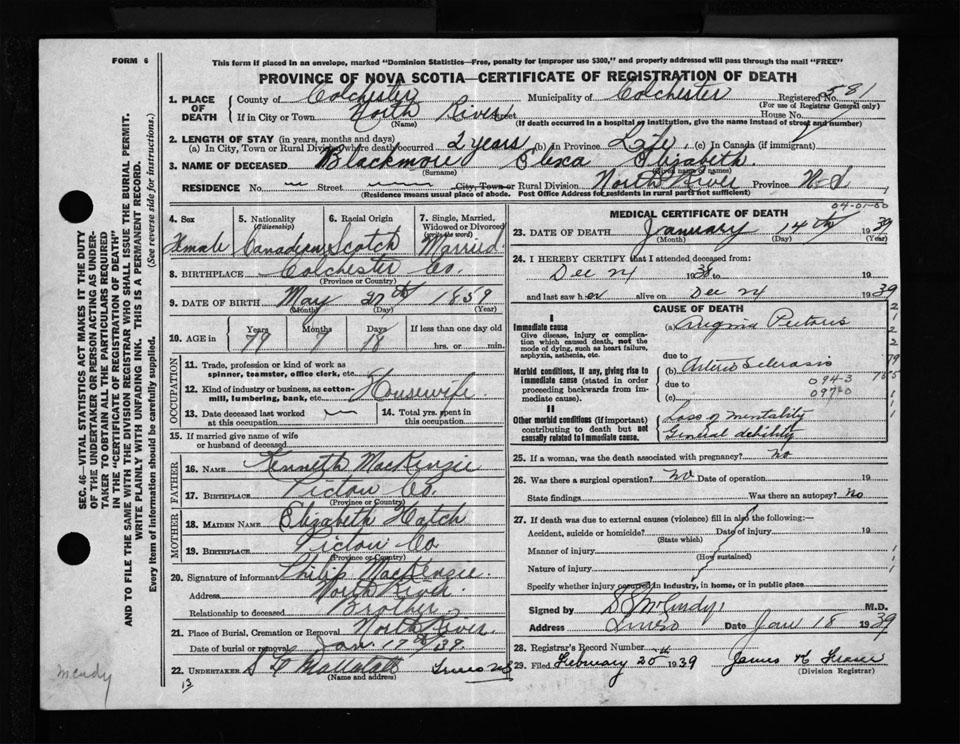 FORM 6
This form if placed in an envelope, marked "Dominion Statistics—Free, penalty for improper use $300," and properly addressed will pass through the mail "FREE"
PROVINCE OF NOVA SCOTIA—CERTIFICATE OF REGISTRATION OF DEATH
1. PLACE OF DEATH County of Colchester Municipality of Colchester Registered No. 581
(For use of Registrar General only)
If in City or Town North River Street House No.
(Name) (If death occurred in a hospital or institution, give the name instead of street and number)
2. LENGTH OF STAY (in years, months and days)
(a) In City, Town or Rural Division where death occurred 2 years (b) In Province Life (c) In Canada (if immigrant)
3. NAME OF DECEASED Blackmore Elexa Elizabeth
(Surname) (Given name or names)
RESIDENCE No. Street City, Town or Rural Division North River Province N.S.
(Residence means usual place of abode. Post Office Address for residents in rural parts not sufficient)
4. Sex Female
5. Nationality (Citizenship) Canadian
6. Racial Origin Scotch
7. Single, Married, Widowed or Divorced (write the word) Married
8. BIRTHPLACE Colchester Co.
(Province or Country)
9. DATE OF BIRTH May 27th 1859
(Month) (Day) (Year)
10. AGE in Years 79 Months 7 Days 18 If less than one day old
hrs. or min.
OCCUPATION
11. Trade, profession or kind of work as spinner, teamster, office clerk, etc.
12. Kind of industry or business, as cotton-mill, lumbering, bank, etc. Housewife
13. Date deceased last worked at this occupation
14. Total yrs. spent in this occupation
15. If married give name of wife or husband of deceased
FATHER
16. Name Kenneth MacKenzie
17. Birthplace Pictou Co.
(Province or Country)
MOTHER
18. Maiden Name Elizabeth Hatch
19. Birthplace Pictou Co
(Province or Country)
20. Signature of informant Philip MacKenzie
Address North River
Relationship to deceased Brother
21. Place of Burial, Cremation or Removal North River
Date of burial or removal Jan 17th/39
22. UNDERTAKER Truro NS
(Name and address)
13
04-01-50
MEDICAL CERTIFICATE OF DEATH
23. DATE OF DEATH January 14th 1939
(Month) (Day) (Year)
24. I HEREBY CERTIFY that I attended deceased from:
Dec 24 1938 to 19
and last saw her alive on Dec 24 1939
CAUSE OF DEATH
I
Immediate cause
Give disease, injury or complication which caused death, not the mode of dying, such as heart failure, asphyxia, asthenia, etc.
(a) Angina Pectoris
due to
Morbid conditions, if any, giving rise to immediate cause (stated in order proceeding backwards from immediate cause).
(b) Arterio Sclerosis
due to 094-3
(c) 097-0
II
Other morbid conditions (if important) contributing to death but not causally related to immediate cause.
Loss of mentality
General debility
25. If a woman, was the death associated with pregnancy? no
26. Was there a surgical operation? no Date of operation 19
State findings Was there an autopsy? No
27. If death was due to external causes (violence) fill in also the following:—
Accident, suicide or homicide? Date of injury 19
(State which)
Manner of injury
(How sustained)
Nature of injury
Specify whether injury occurred in industry, in home, or in public place
Signed by M.D.
Address Truro Date Jan 18 1939
28. Registrar's Record Number
29. Filed February 20th 1939 James K Fraser
(Division Registrar)
SEC. 46—VITAL STATISTICS ACT MAKES IT THE DUTY OF THE UNDERTAKER OR PERSON ACTING AS UNDERTAKER TO OBTAIN ALL THE PARTICULARS REQUIRED IN THE "CERTIFICATE OF REGISTRATION OF DEATH" AND TO FILE THE SAME WITH THE DIVISION REGISTRAR WHO SHALL ISSUE THE BURIAL PERMIT.
WRITE PLAINLY WITH UNFADING INK. THIS IS A PERMANENT RECORD.
Every item of information should be carefully supplied. (See reverse side for instructions.)